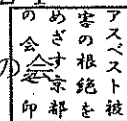 アスベスト被
害の根絶を
めざす京都
の会会印
の会